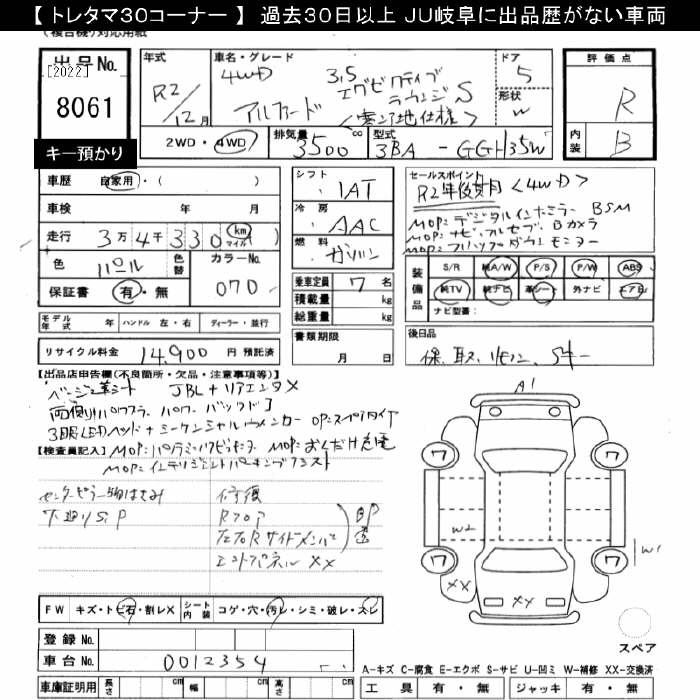 【 トレタマ30コーナー 】 過去30日以上 JU岐阜に出品歴がない車両
出品No.
[2022]
8061
キー預かり
年式
R2/12月
車名・グレード
4WD 3.5 エグゼクティブ
アルファード ラウンジS
<寒冷地仕様>
ドア
5
形状
W
評価点
R
内装
B
2WD・4WD
排気量 3500 cc
型式 3BA - GGH35W
車歴 自家用・( )
車検 年 月
走行 3万4千330 km マイル ( )
色 パール
色替
カラーNo. 070
保証書 有・無
シフト IAT
冷房 AAC
燃料 ガソリン
乗車定員 7 名
積載量 kg
総重量 kg
セールスポイント
R2年後期 <4WD>
MOP:デジタルインナーミラー BSM
MOP:ナビ・フルセグ・Bカメラ
装備品
S/R 純A/W P/S P/W ABS
純TV 純ナビ 革シート 外ナビ エアB
ナビ型番:
モデル年式 年 ハンドル 左・右 ディーラー・並行
リサイクル料金 14,900 円 預託済
書類期限 月 日
後日品
保、取、リモコン、Sキー
【出品店申告欄(不良箇所・欠品・注意事項等)】
ベージュ革シート JBL+リアエンタX
両側パワスラ パワーバックドア
3眼LEDヘッド+シーケンシャルウインカー OP:スペアタイヤ
【検査員記入】
MOP:インテリジェントパーキングアシスト
センターピラー物はさみ
下廻りS,P
修復
Rフロア
左右Rサイドメンバー
エンドパネル XX
A1
7
7
W2
W1
7
7
XX
XX
スペア
FW キズ・トビ石・割レX
シート内装 コゲ・穴・汚レ・シミ・破レ・スレ
登録No.
車台No. 0012354
A-キズ C-腐食 E-エクボ S-サビ U-凹ミ W-補修 XX-交換済
車庫証明用 長さ cm 幅 cm 高さ cm
工具 有・無 ジャッキ 有・無